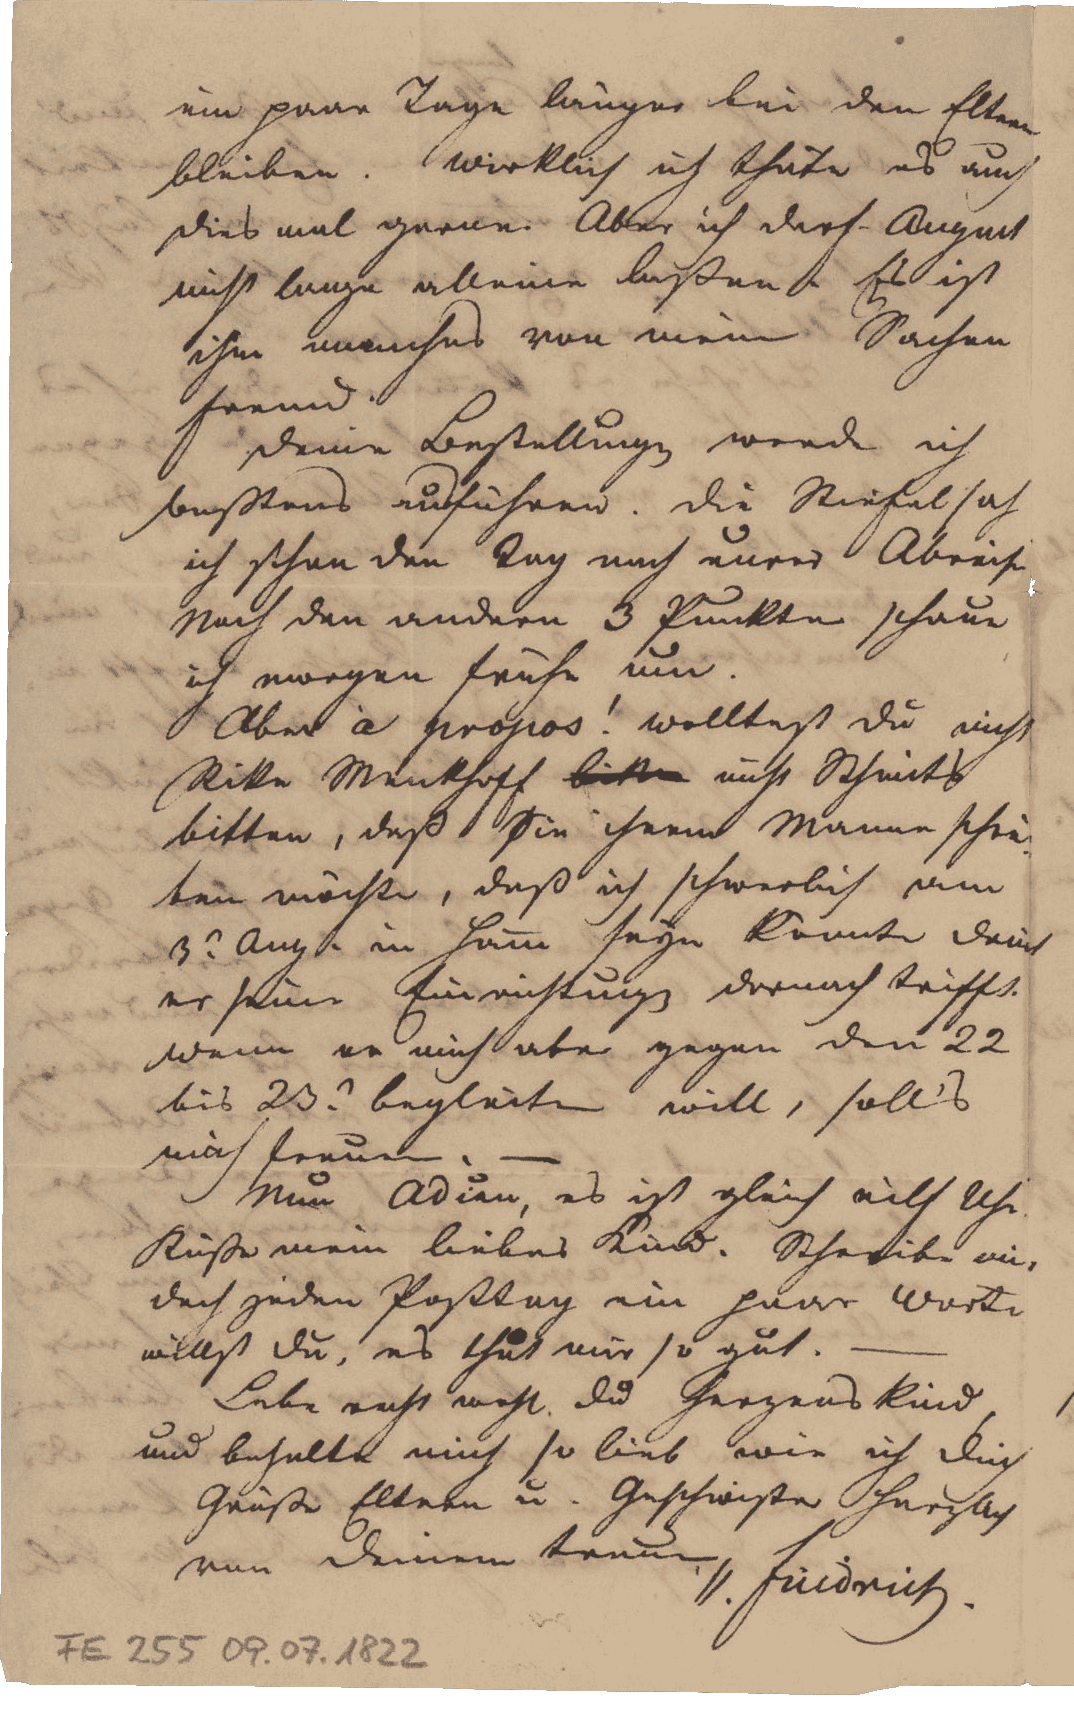 ein paar Tage länger bei den Eltern
bleiben. Wirklich ich thäte es auch
dies mal gerne. Aber ich darf August
nicht lange alleine laßen. Es ist
ihm manches von mein Sachen
fremd.
Deine Bestellung werde ich
bestens ausführen. Die Stiefel sah
ich schon den Tag nach eurer Abreise
Nach den andern 3 Punkten schaue
ich morgen frühe um.
Aber à propos! wolltest du nicht
Rike Menkhoff bitten nicht Schmits
bitten, daß Sie ihrem Manne schrei-
ben möchte, daß ich schwerlich am
3? Aug. in Ham seyn könnte damit
er seine Einrichtung darnach trifft.
wenn er mich aber gegen den 22
bis 23? begleiten will, soll's
mich freuen. —
Nun Adieu, es ist gleich eilf Uhr.
Küße mein liebes Kind. Schreibe mir
doch jeden Posttag ein paar Worte
willst du, es thut mir so gut. —
Lebe recht wohl du Herzenskind,
und behalte mich so lieb wie ich dich
Grüße Eltern u. Geschwister herzlich
von Deinem treuen
Friedrich.
FE 255 09.07.1822